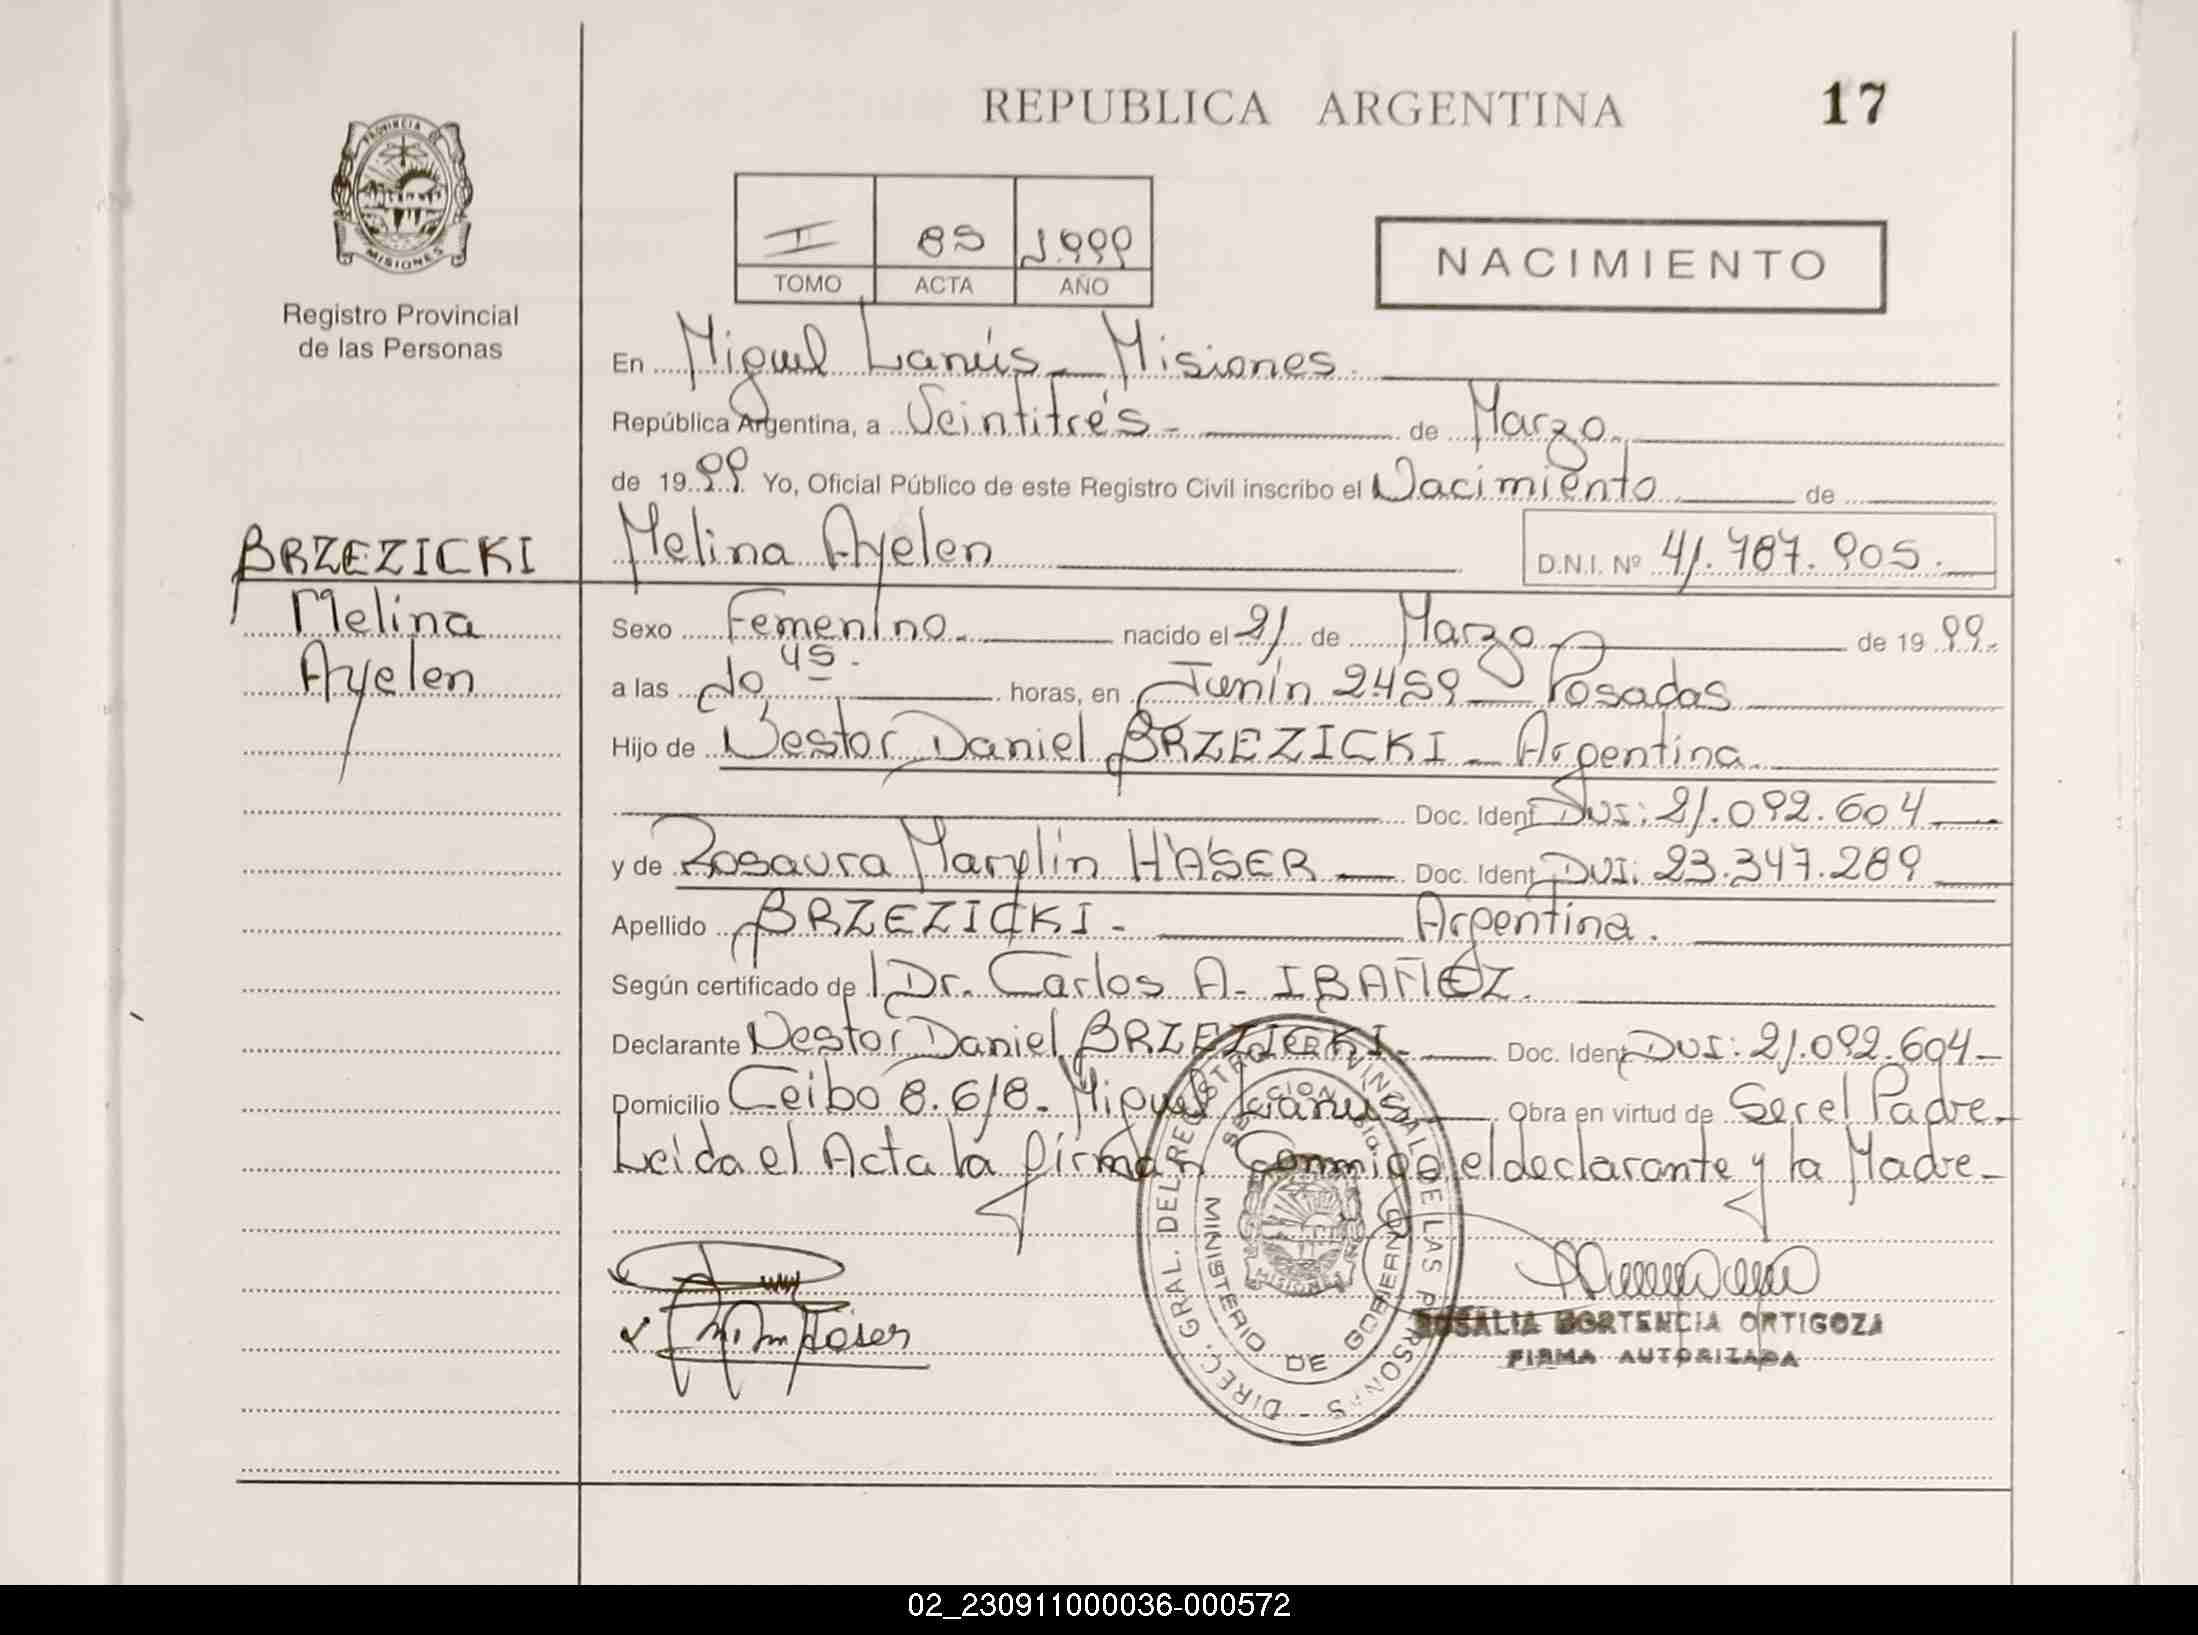 REPUBLICA ARGENTINA
17
PROVINCIA DE
MISIONES
Registro Provincial
de las Personas
II 85 1.999
TOMO ACTA AÑO
NACIMIENTO
En Miguel Lanús - Misiones.
República Argentina, a Veintitrés - de Marzo.
de 1999. Yo, Oficial Público de este Registro Civil inscribo el Nacimiento de
BRZEZICKI
Melina
Ayelen
Melina Ayelen
D.N.I. Nº 41.787.905.-
Sexo Femenino.- nacido el 21 de Marzo de 1999.
a las 45. horas, en Junín 2459 - Posadas
Hijo de Nestor Daniel BRZEZICKI - Argentina.
Doc. Ident. DNI: 21.092.604
y de Rosaura Marylin HASER - Doc. Ident. DNI: 23.347.289
Apellido BRZEZICKI - Argentina.
Según certificado de Dr. Carlos A. IBAÑEZ.
Declarante Nestor Daniel BRZEZICKI - Doc. Ident. DNI: 21.092.604-
Domicilio Ceibo 8.618. Miguel Lanus Obra en virtud de Ser el Padre-
Leida el Acta la firman Conmigo el declarante y la Madre-
DIREC. GRAL. DEL REGISTRO PROVINCIAL DE LAS PERSONAS
MINISTERIO DE GOBIERNO
MISIONES
ROSALIA HORTENCIA ORTIGOZA
FIRMA AUTORIZADA
02_230911000036-000572